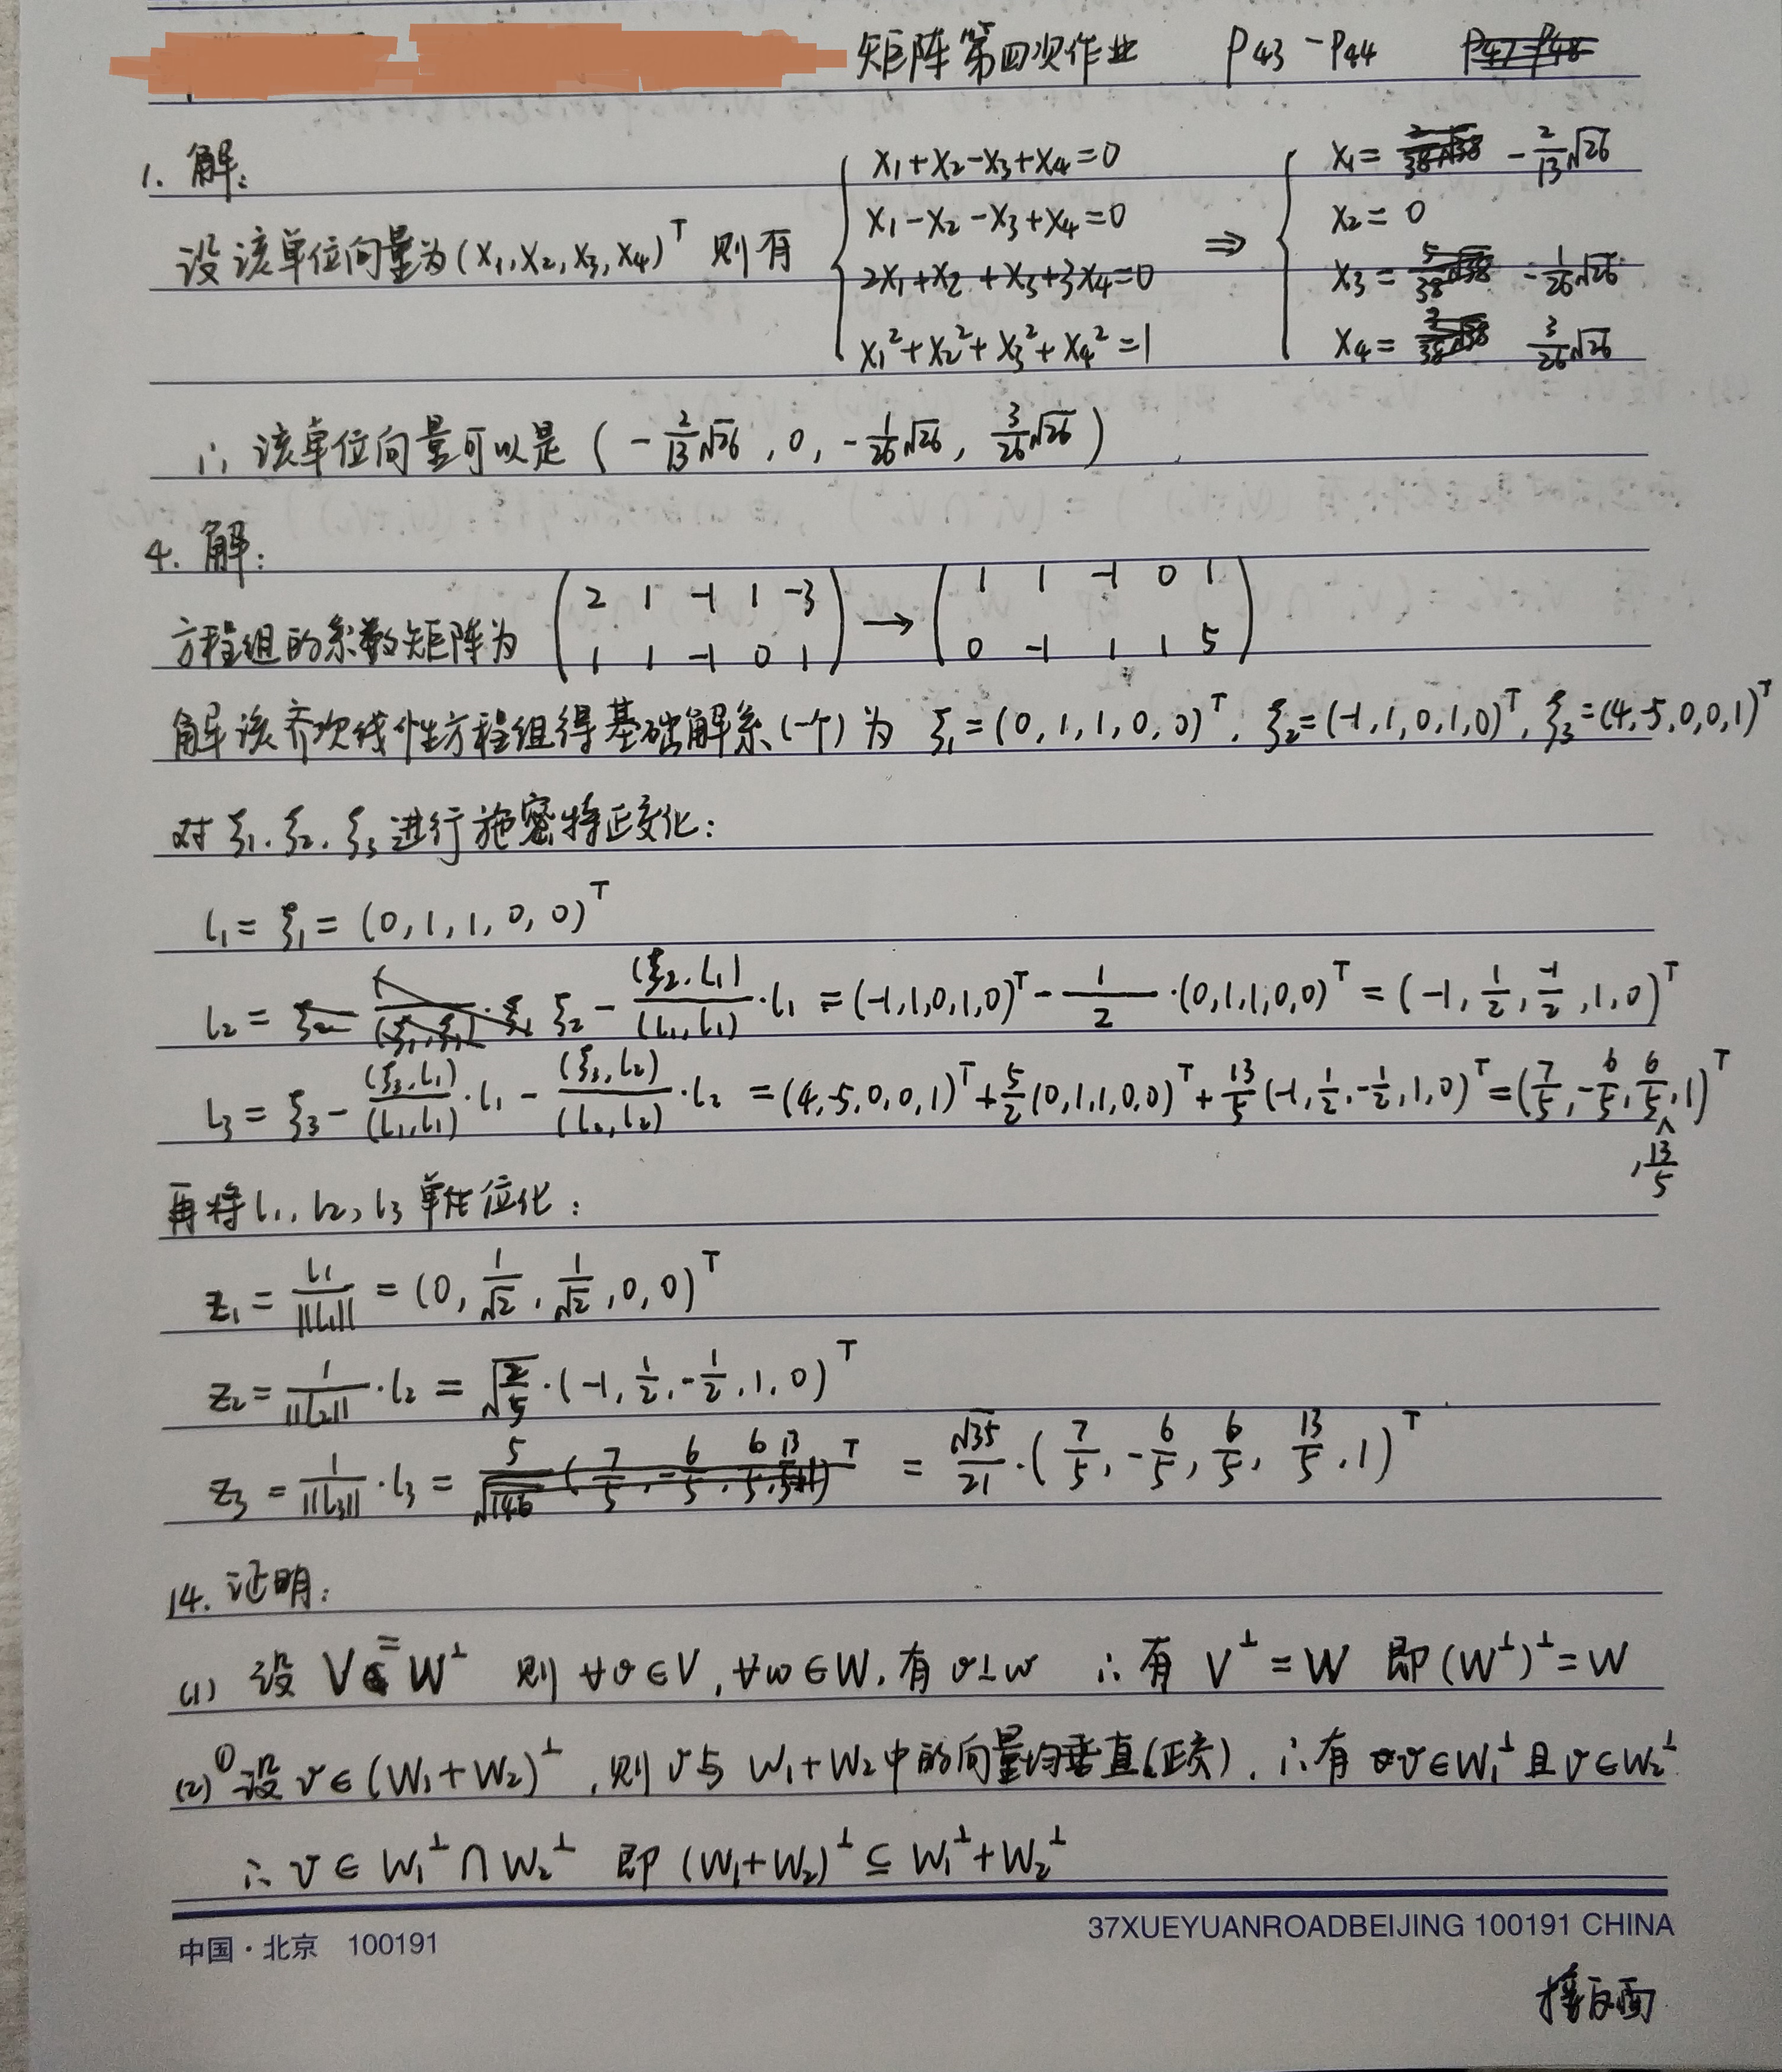 矩阵第四次作业 P43-P44
1. 解:
设该单位向量为(x₁,x₂,x₃,x₄)ᵀ 则有
x₁+x₂-x₃+x₄=0
x₁-x₂-x₃+x₄=0
2x₁+x₂+x₃+3x₄=0
x₁²+x₂²+x₃²+x₄²=1
⇒
x₁= -2/13√26
x₂= 0
x₃= -1/26√26
x₄= 3/26√26
∴ 该单位向量可以是 (-2/13√26, 0, -1/26√26, 3/26√26)
4. 解:
方程组的系数矩阵为 (2 1 -1 1 -3; 1 1 -1 0 1) → (1 1 -1 0 1; 0 -1 1 1 5)
解该齐次线性方程组得基础解系(一个)为 ξ₁=(0,1,1,0,0)ᵀ, ξ₂=(-1,1,0,1,0)ᵀ, ξ₃=(4,-5,0,0,1)ᵀ
对ξ₁,ξ₂,ξ₃进行施密特正交化:
l₁=ξ₁=(0,1,1,0,0)ᵀ
l₂= ξ₂-(ξ₂,l₁)/(l₁,l₁)·l₁ =(-1,1,0,1,0)ᵀ-1/2·(0,1,1,0,0)ᵀ=(-1,1/2,-1/2,1,0)ᵀ
l₃=ξ₃-(ξ₃,l₁)/(l₁,l₁)·l₁-(ξ₃,l₂)/(l₂,l₂)·l₂ =(4,-5,0,0,1)ᵀ+5/2(0,1,1,0,0)ᵀ+13/5(-1,1/2,-1/2,1,0)ᵀ=(7/5,-6/5,6/5,13/5,1)ᵀ
再将l₁,l₂,l₃单位化:
z₁=l₁/||l₁||=(0,1/√2,1/√2,0,0)ᵀ
z₂=1/||l₂||·l₂=√(2/5)·(-1,1/2,-1/2,1,0)ᵀ
z₃=1/||l₃||·l₃= = √35/21·(7/5,-6/5,6/5,13/5,1)ᵀ
14. 证明:
(1) 设 V=W^⊥ 则 ∀v∈V,∀w∈W,有v⊥w ∴有 V^⊥=W 即(W^⊥)^⊥=W
(2)①设v∈(W₁+W₂)^⊥,则v与W₁+W₂中的向量均垂直(正交),∴有v∈W₁^⊥且v∈W₂^⊥
∴v∈W₁^⊥∩W₂^⊥ 即(W₁+W₂)^⊥⊆W₁^⊥+W₂^⊥
中国·北京 100191
37XUEYUANROADBEIJING 100191 CHINA
接反面